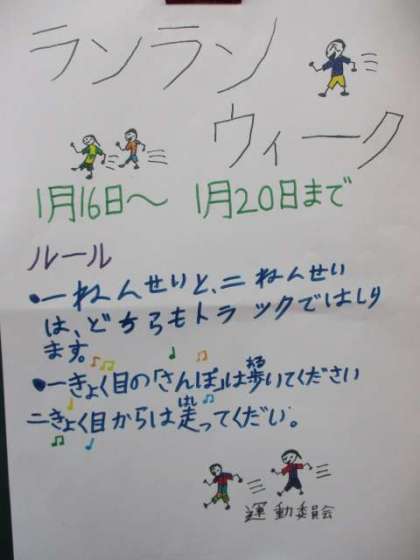 ランラン
ウィーク
1月16日〜 1月20日まで
ルール
•一ねんせいと、二ねんせい
は、どちらもトラックではしり
ます。
•一きょく目の「さんぽ」は歩いてください
二きょく目からは走ってくだい。
運動委員会